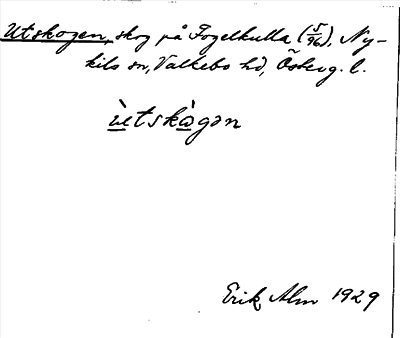 Utskogen, skog på Fogelkulla (5/96), Ny-
kils sn, Valkebo hd, Österg. l.
ùtskògən
Erik Alm 1929